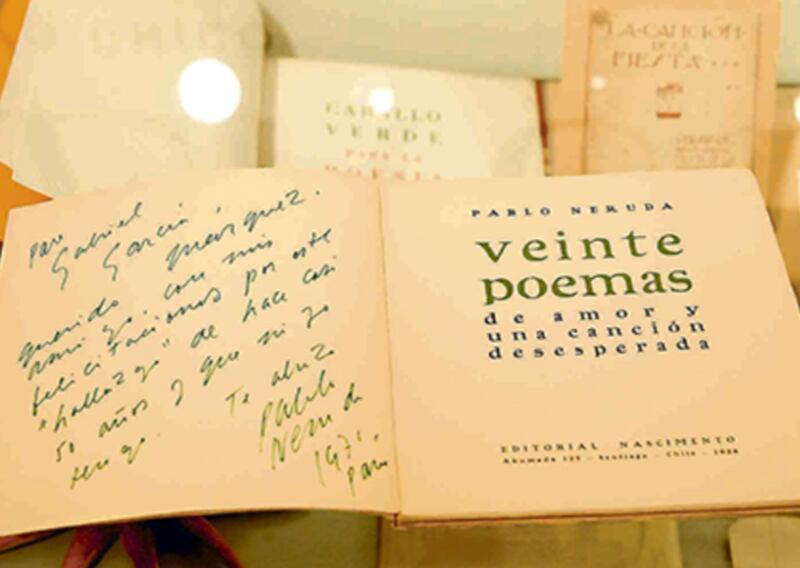 CABALLO
VERDE
PARA LA
POESIA
LA CANCION
DE LA
FIESTA...
para
Gabriel
García
Marquez.
querido
amigo, con mis
felicitaciones por este
"hallazgo" de hace casi
50 años y que ni yo
tengo.
Te abraza
Pablo
Neruda
1971.
Paris
PABLO NERUDA
veinte
poemas
de amor y
una canción
desesperada
EDITORIAL NASCIMENTO
Ahumada 125 - Santiago - Chile - 1924